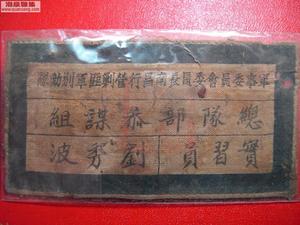 軍事委員會委員長南昌行營剿匪軍別動隊
總隊部叅謀組
實習員 劉 波